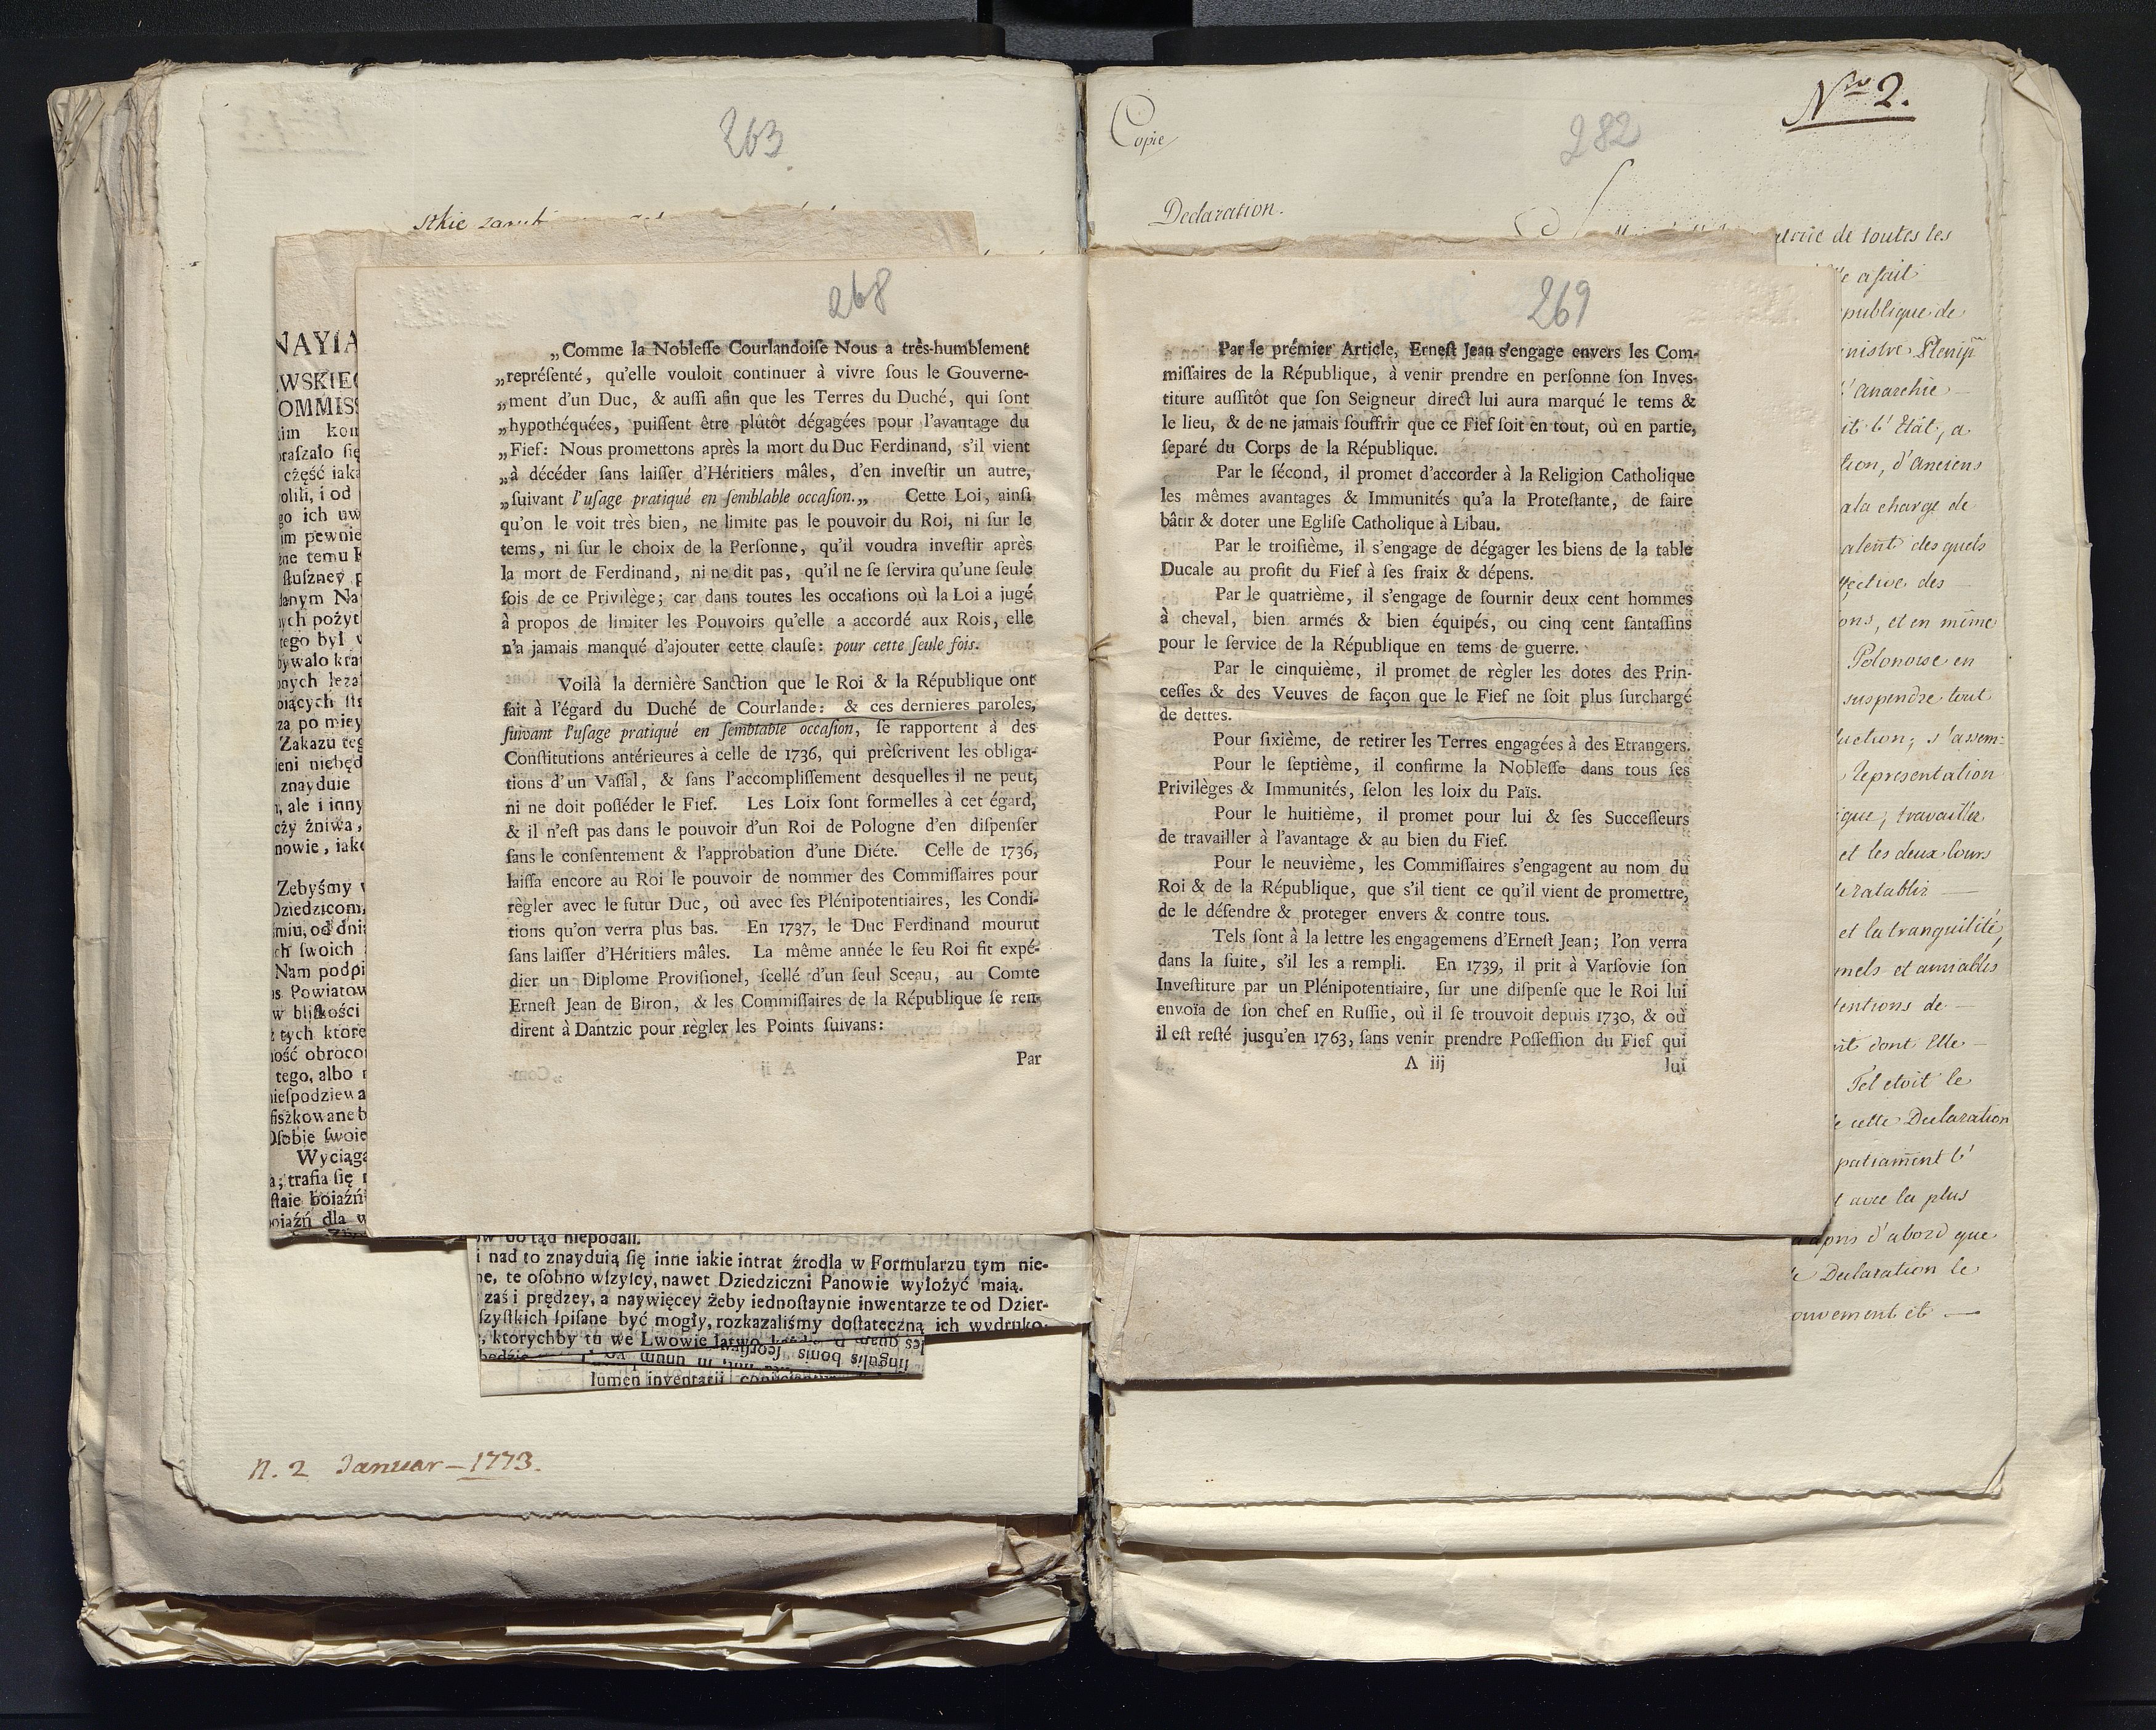 263
stkie
268
„Comme la Nobleſſe Courlandoiſe Nous a très-humblement
„repréſenté, qu'elle vouloit continuer à vivre ſous le Gouverne-
„ment d'un Duc, & auſſi afin que les Terres du Duché, qui ſont
„hypothéquées, puiſſent être plûtôt dégagées pour l'avantage du
„Fief: Nous promettons après la mort du Duc Ferdinand, s'il vient
„à décéder ſans laiſſer d'Héritiers mâles, d'en inveſtir un autre,
„ſuivant l'uſage pratiqué en ſemblable occaſion.„ Cette Loi, ainſi
qu'on le voit très bien, ne limite pas le pouvoir du Roi, ni ſur le
tems, ni ſur le choix de la Perſonne, qu'il voudra inveſtir après
la mort de Ferdinand, ni ne dit pas, qu'il ne ſe ſervira qu'une ſeule
fois de ce Privilège; car dans toutes les occaſions où la Loi a jugé
à propos de limiter les Pouvoirs qu'elle a accordé aux Rois, elle
n'a jamais manqué d'ajouter cette clauſe: pour cette ſeule fois.
Voilà la dernière Sanction que le Roi & la République ont
fait à l'égard du Duché de Courlande: & ces dernieres paroles,
ſuivant l'uſage pratiqué en ſemblable occaſion, ſe rapportent à des
Conſtitutions antérieures à celle de 1736, qui prèſcrivent les obliga-
tions d'un Vaſſal, & ſans l'accompliſſement desquelles il ne peut,
ni ne doit poſſéder le Fief. Les Loix ſont formelles à cet égard,
& il n'eſt pas dans le pouvoir d'un Roi de Pologne d'en diſpenſer
ſans le conſentement & l'approbation d'une Diéte. Celle de 1736,
laiſſa encore au Roi le pouvoir de nommer des Commiſſaires pour
règler avec le futur Duc, où avec ſes Plénipotentiaires, les Condi-
tions qu'on verra plus bas. En 1737, le Duc Ferdinand mourut
ſans laiſſer d'Héritiers mâles. La même année le feu Roi fit expé-
dier un Diplome Proviſionel, ſcellé d'un ſeul Sceau, au Comte
Erneſt Jean de Biron, & les Commiſſaires de la République ſe ren-
dirent à Dantzic pour règler les Points ſuivans:
Par
NAYIA
WSKIEG
OMMISS
im kon
raſzało ſię
część iaka
olili, i od
go ich uw
im pewnie
ne temu
ſłuſzney p
danym Na
ych pożyt
tego był
bywało
Zakazu teg
ieni niebęd
znayduie
, ale i inny
ży żniwa,
nowie, iak
Zebyśmy
Dziedzicom
miu, od dni
ch ſwoich
Nam podpi
s Powiatow
w bliſkości
z tych ktore
ność obroco
tego, albo
nieſpodziewa
ſiszkowane b
Oſobie ſwoie
Wyciąga
a; trafia ſię
ſtaie boiaźń
oiaźń dla w
niepodali.
i nad to znayduią ſię inne iakie intrat źrodła w Formularzu tym nie-
ne, te oſobno wſzyſcy, nawet Dziedziczni Panowie wyłożyć maią.
zaś i prędzey, a naywięcey żeby iednoſtaynie inwentarze te od Dzier-
ſzyſtkich ſpiſane być mogły, rozkazaliśmy doſtateczną ich wydruko-
, ktorychby tu we Lwowie łatwo
będzie
ſingulis bonis
lumen inventarii
n. 2 Januar – 1773.
Copie
282
Nro 2.
Declaration.
de toutes les
269
Par le prémier Article, Erneſt Jean s'engage envers les Com-
miſſaires de la République, à venir prendre en perſonne ſon Inves-
titure auſſitôt que ſon Seigneur direct lui aura marqué le tems &
le lieu, & de ne jamais ſouffrir que ce Fief ſoit en tout, où en partie,
ſeparé du Corps de la République.
Par le ſécond, il promet d'accorder à la Religion Catholique
les mêmes avantages & Immunités qu'a la Proteſtante, de faire
bâtir & doter une Egliſe Catholique à Libau.
Par le troiſième, il s'engage de dégager les biens de la table
Ducale au profit du Fief à ſes fraix & dépens.
Par le quatrième, il s'engage de fournir deux cent hommes
à cheval, bien armés & bien équipés, ou cinq cent fantaſſins
pour le ſervice de la République en tems de guerre.
Par le cinquième, il promet de règler les dotes des Prin-
ceſſes & des Veuves de façon que le Fief ne ſoit plus ſurchargé
de dettes.
Pour ſixième, de retirer les Terres engagées à des Etrangers.
Pour le ſeptième, il confirme la Nobleſſe dans tous ſes
Privilèges & Immunités, ſelon les loix du Païs.
Pour le huitième, il promet pour lui & ſes Succeſſeurs
de travailler à l'avantage & au bien du Fief.
Pour le neuvième, les Commiſſaires s'engagent au nom du
Roi & de la République, que s'il tient ce qu'il vient de promettre,
de le défendre & proteger envers & contre tous.
Tels ſont à la lettre les engagemens d'Erneſt Jean; l'on verra
dans la ſuite, s'il les a rempli. En 1739, il prit à Varſovie ſon
Inveſtiture par un Plénipotentiaire, ſur une diſpenſe que le Roi lui
envoïa de ſon chef en Ruſſie, où il ſe trouvoit depuis 1730, & où
il eſt reſté jusqu'en 1763, ſans venir prendre Poſſeſſion du Fief qui
A iij
lui
a fait
publique de
nistre Plenip
l'anarchie
it l'Etât, a
tion, d'anciens
a la charge de
des quels
des
ons, et en même
Polonoise en
suspendre tout
uction; s'assem-
Representation
ique; travailler
et les deux Cours
retablir
et la tranquilité,
nels et amiables
tentions de
dont Elle
Tel etoit le
cette Declaration
l'
avec la plus
apris d'abord que
Declaration le
ouvement et